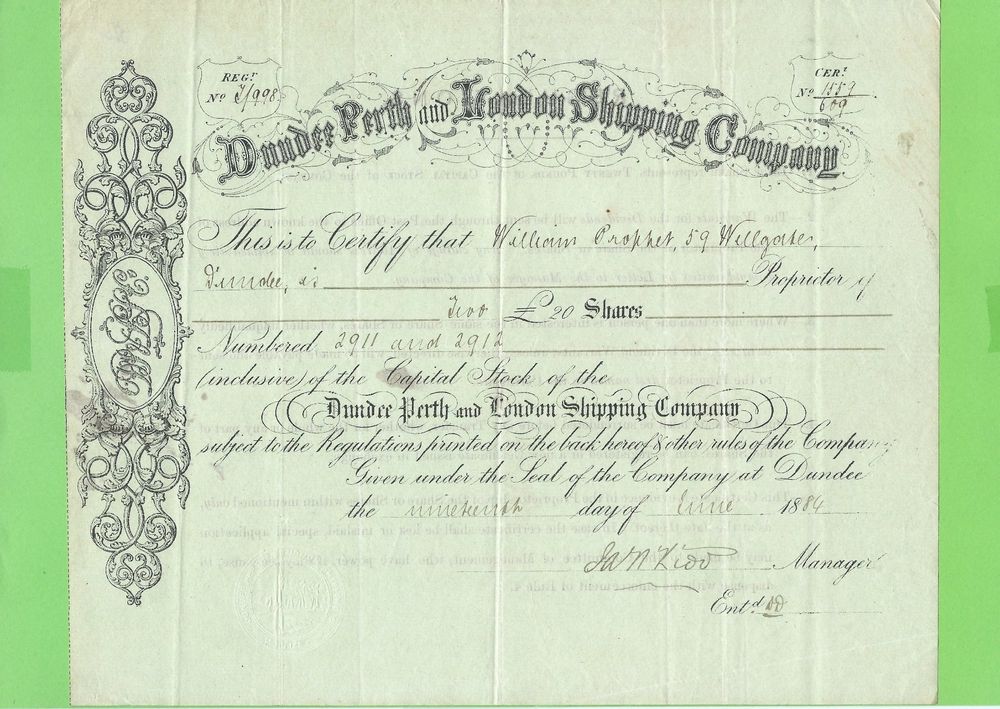 REGT
No 3/998
CERT
No 1559
609
Dundee Perth and London Shipping Company
This is to Certify that William Prophet, 59 Wellgate,
Dundee, is Proprietor of
Two £20 Shares
Numbered 2911 and 2912
(inclusive) of the Capital Stock of the
Dundee Perth and London Shipping Company
subject to the Regulations printed on the back hereof & other rules of the Company
Given under the Seal of the Company at Dundee
the nineteenth day of June 1884
Kidd Manager
Entd